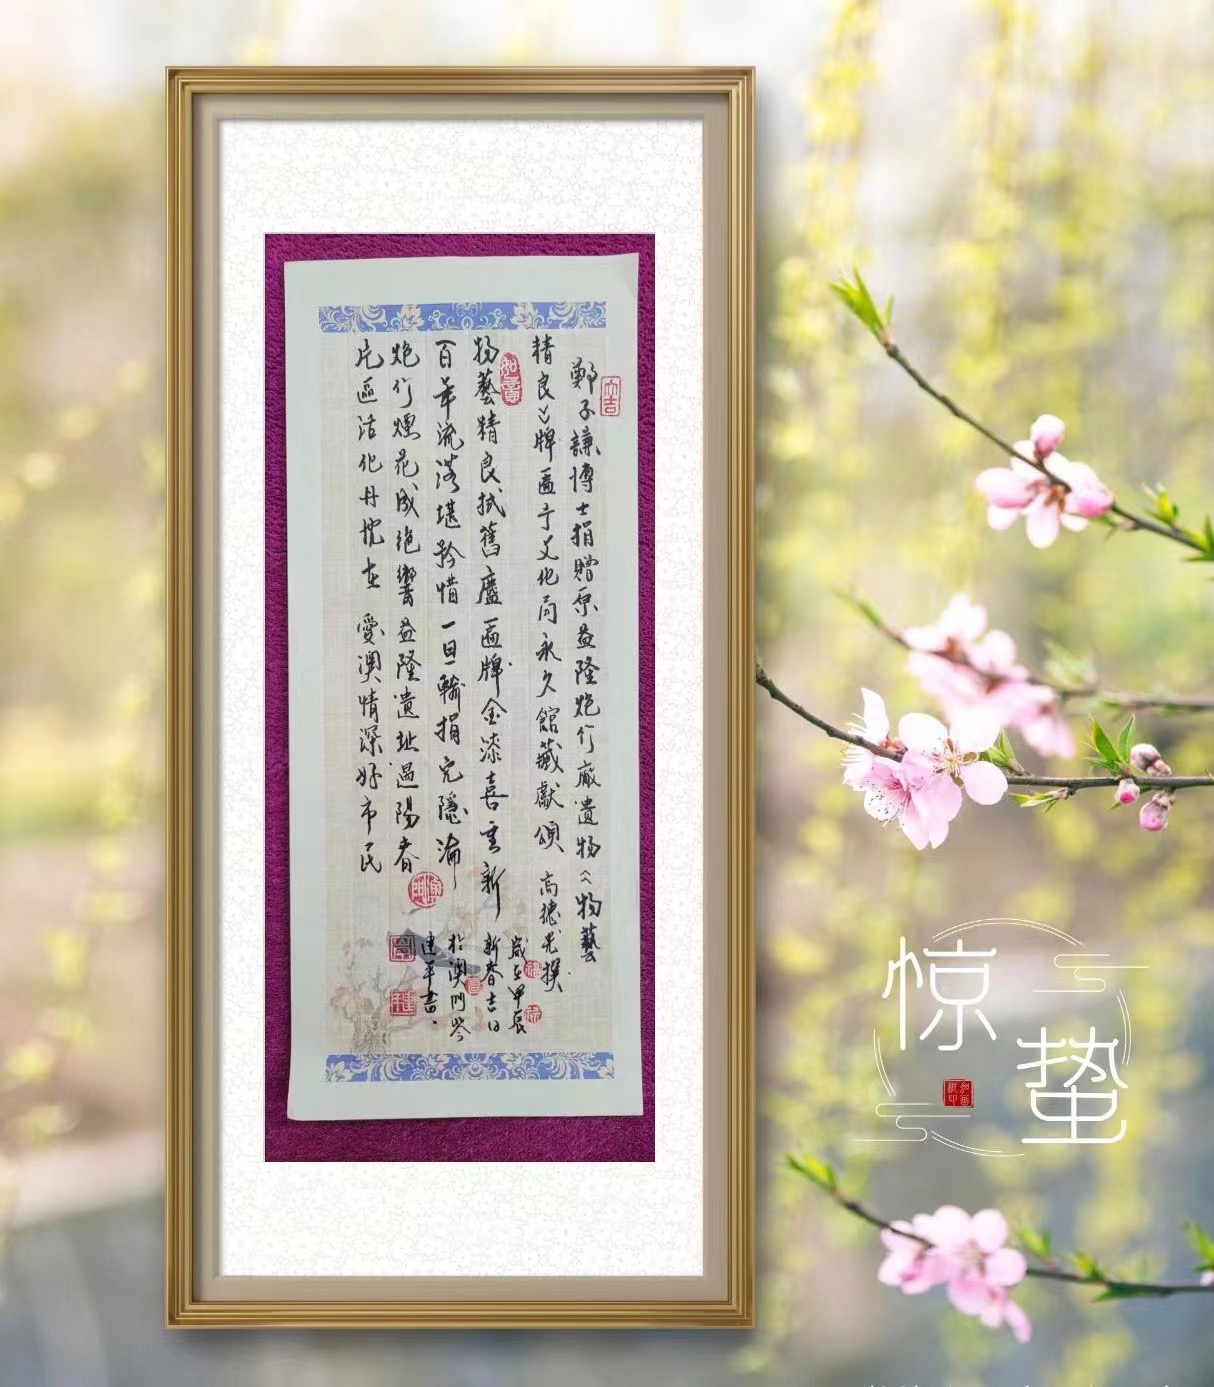 鄭子謙博士捐贈原益隆炮竹廠遺物《物藝
精良》牌匾于文化局永久館藏獻頌 高德光撰
物藝精良拭舊廬匾牌金漆喜重新
百年流落堪矜惜一旦輸捐免隱淪
炮竹煙花成絕響益隆遺址過陽春
片區活化丹忱在 愛澳情深好市民
歲在甲辰
新春吉日
於澳門
建平書
大吉
如意
惊
蛰